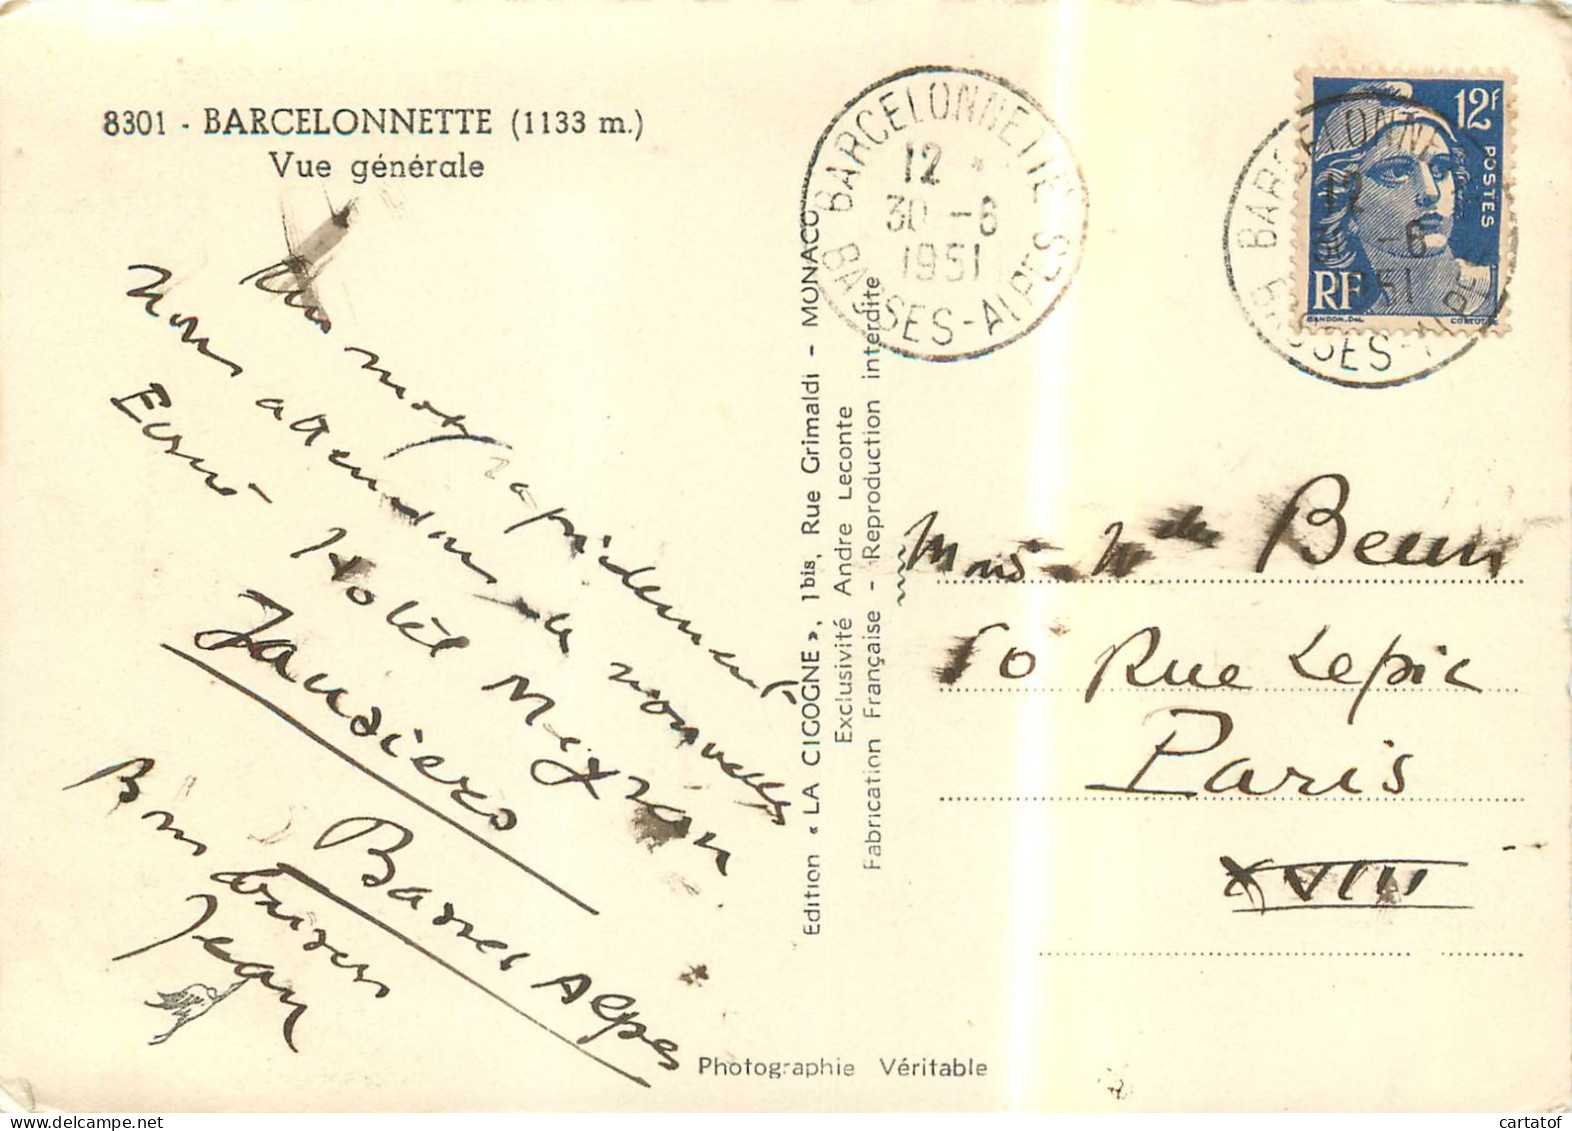 8301 - BARCELONNETTE (1133 m.)
Vue générale
Un mot rapidement
nous attendons de nouvelles
Ecrire Hotel Megran
Jausiers
Basses Alpes
Bons baisers
Jean
Edition « LA CIGOGNE », 1bis, Rue Grimaldi - MONACO
Exclusivité Andre Leconte
Fabrication Française - Reproduction interdite
Photographie Véritable
BARCELONNETTE
12 *
30 -6
1951
BASSES-ALPES
BARCELONNETTE
12
30 -6
1951
BASSES-ALPES
12F
POSTES
RF
GANDON.Del.
CORTOT.SC
Beun
50 Rue Lepic
Paris
XVIII
cartatof